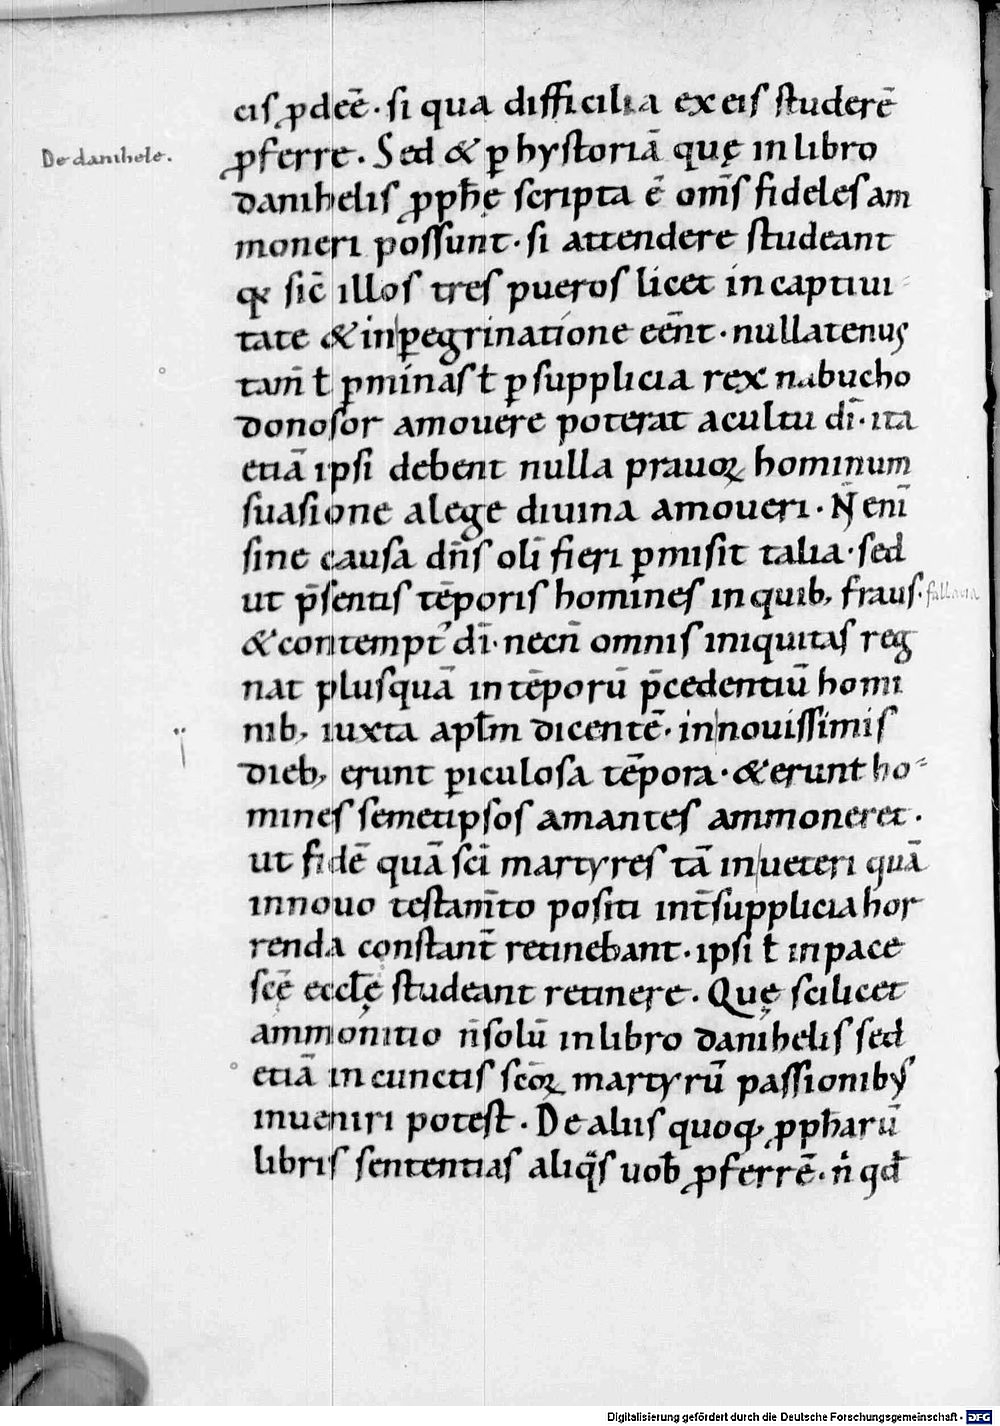 eis ꝓdeē· si qua difficilia ex eis studerē
De danihele.
ꝓferre. Sed & ꝑ hystoriā quę in libro
danihelis ꝓph̄ę scripta ē om̄s fideles am
moneri possunt· si attendere studeant
qͥ sic̄ illos tres pueros licet in captiui-
tate & in ꝑegrinatione eēnt· nullatenus
tam̄ ƚ ꝑ minas ƚ ꝑ supplicia rex nabucho
donosor amouere poterat a cultu dī· ita
etiā ipsi debent nulla prauoꝝ hominum
suasione a lege diuina amoueri· N̄ enī
sine causa dn̄s olī fieri ꝑmisit talia· sed
ut p̄sentis tēporis homines in quib; fraus·
fallacia
& contempt᾽ dī· necn̄ omnis iniquitas reg
nat plusquā in tēporū p̄cedentiū homi
nib; iuxta apƚm dicentē· in nouissimis
dieb; erunt ꝑiculosa tēpora· & erunt ho-
mines semetipsos amantes ammoneret·
ut fidē quā scī martyres tā in ueteri quā
in nouo testam̄to positi int̄ supplicia hor
renda constant̄ retinebant· ipsi ƚ in pace
scę̄ eccƚę studeant retinere. Quę scilicet
ammonitio n̄ solū in libro danihelis sed
etiā in cunctis sc̄oꝝ martyrū passionibus
inueniri potest· De aliis quoq; ꝓph̄arū
libris sententias aliq̄s uob̄ ꝓferrē· n̄ qđ
Digitalisierung gefördert durch die Deutsche Forschungsgemeinschaft - DFG